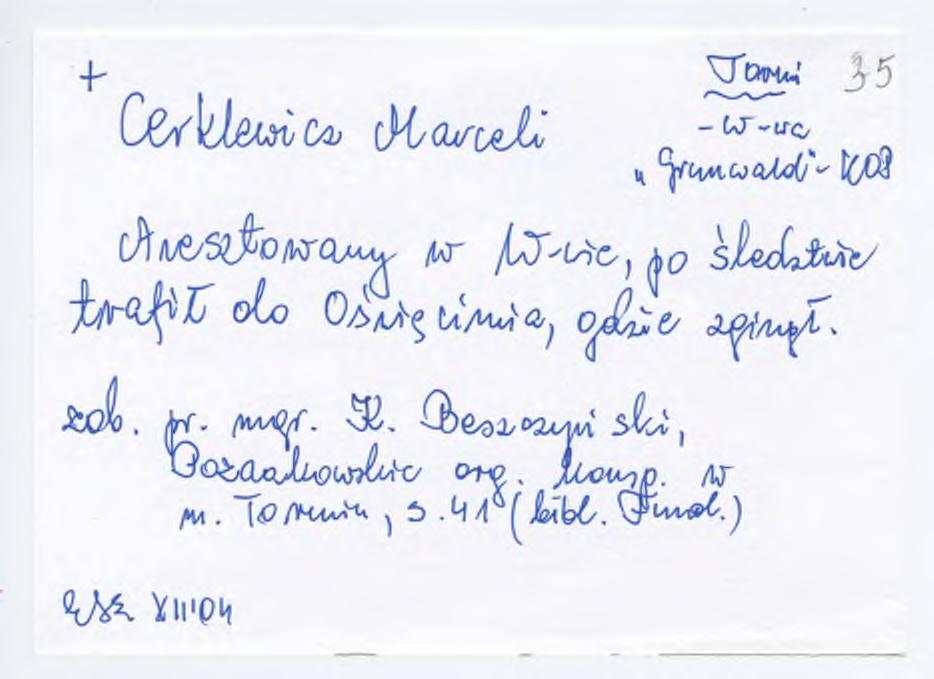 +
Toruń 35
Cerklewicz Marceli
- W-wa
"Grunwald" - KOP
Aresztowany w W-wie, po śledztwie
trafił do Oświęcimia, gdzie zginął.
zob. pr. mgr. K. Beszczyński,
Pozaakowskie org. konsp. w
m. Toruniu, s. 41 (bibl. Fund.)
XII'04